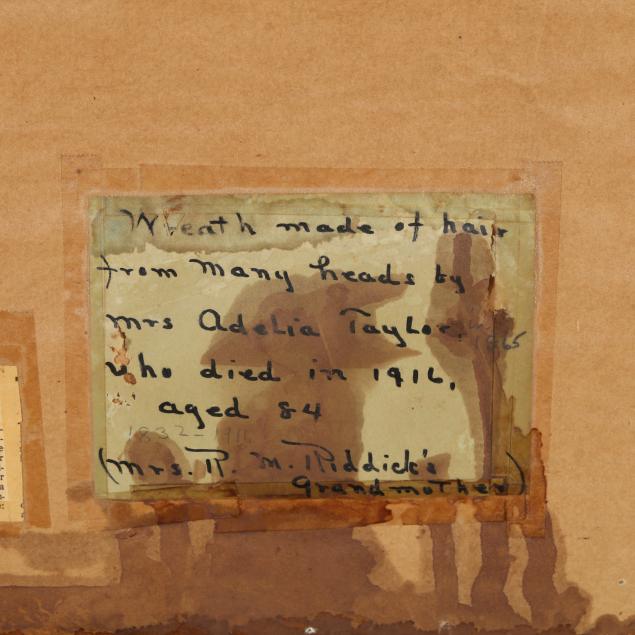 Wreath made of hair
from many heads by
Mrs Adelia Taylor. 1865
who died in 1916,
aged 84
1832-1916
(Mrs. R. M. Riddick's
Grandmother)